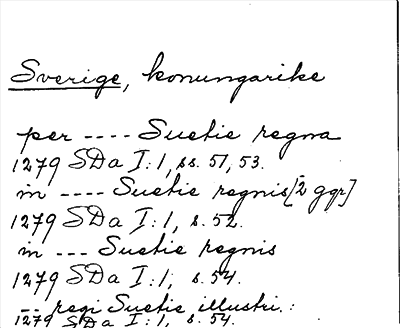 Sverige, konungarike
per ---- Suetie regna
1279 SDa I:1, ss. 51, 53.
in ---- Suetie regnis [2 ggr]
1279 SDa I:1, s. 52.
in --- Suetie regnis
1279 SDa I:1, s. 54.
-- regi Suetie illustri.:
1279 SDa I:1, s. 54.